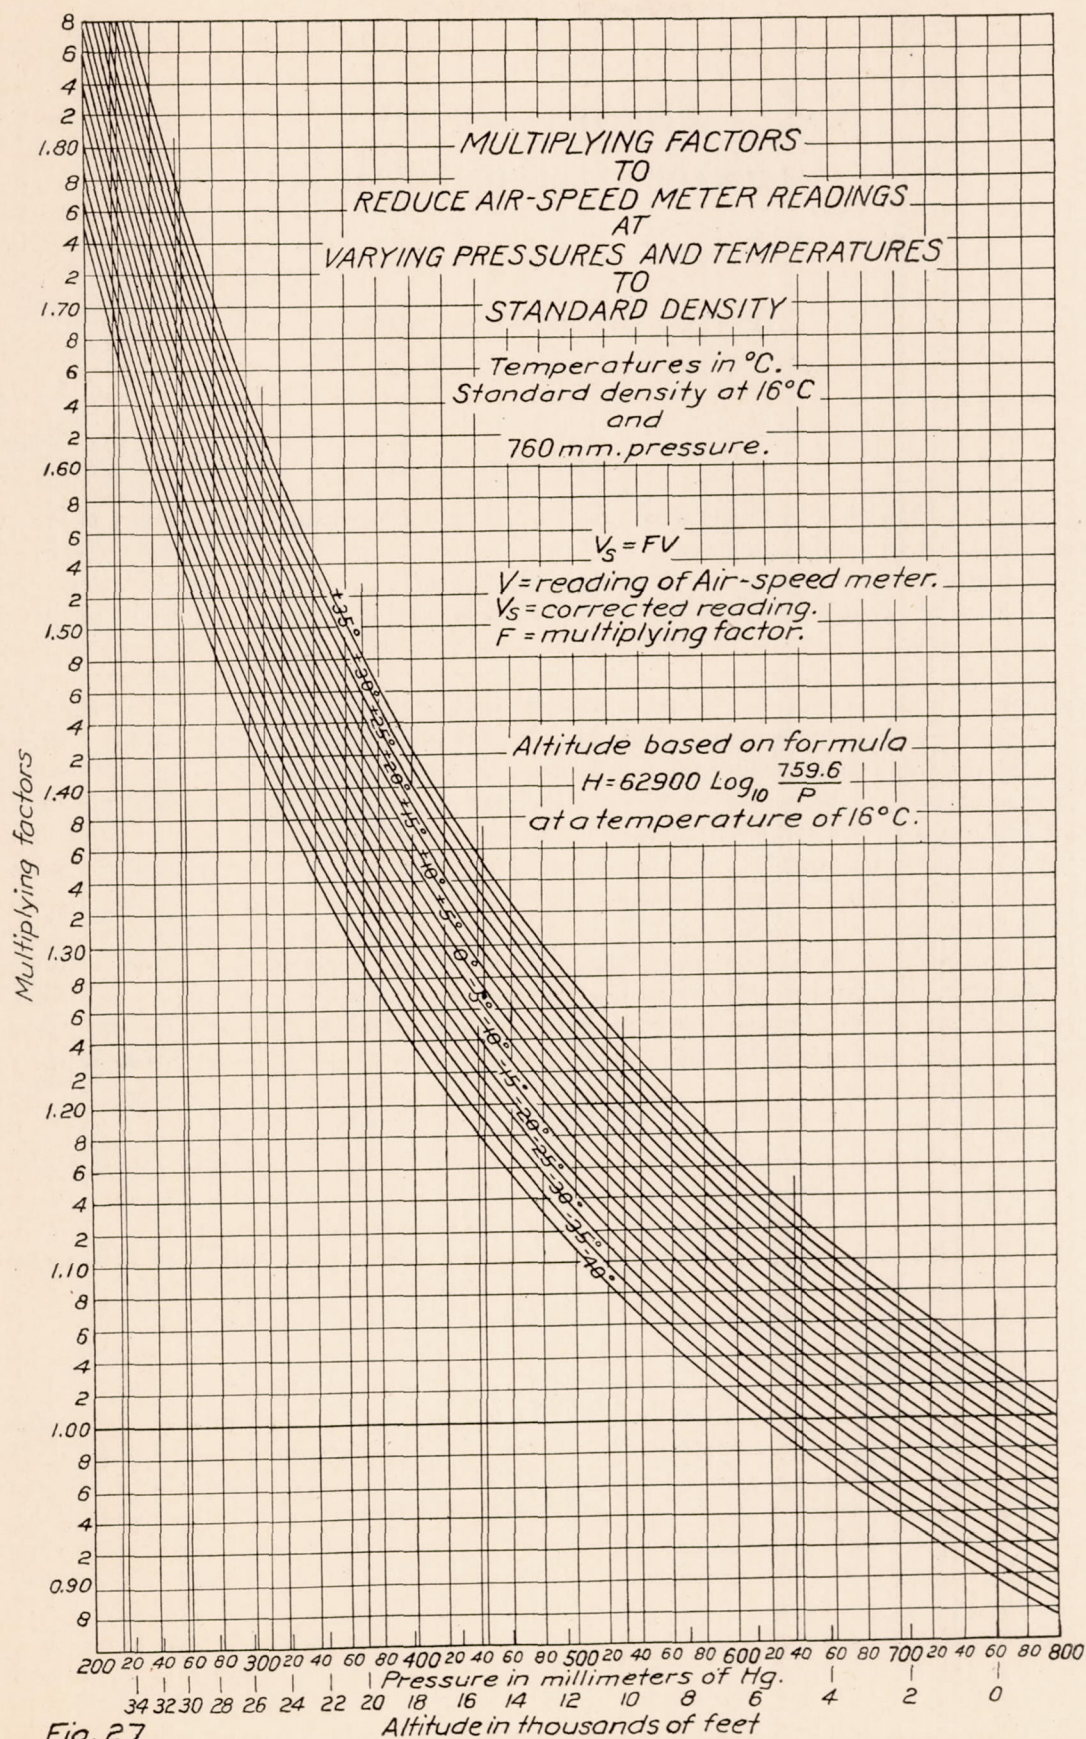 MULTIPLYING FACTORS
TO
REDUCE AIR-SPEED METER READINGS
AT
VARYING PRESSURES AND TEMPERATURES
TO
STANDARD DENSITY
Temperatures in °C.
Standard density at 16°C
and
760 mm. pressure.
Vs = FV
V = reading of Air-speed meter.
Vs = corrected reading.
F = multiplying factor.
Altitude based on formula
H = 62900 Log10 759.6/P
at a temperature of 16°C.
Multiplying factors
8
6
4
2
1.80
8
6
4
2
1.70
8
6
4
2
1.60
8
6
4
2
1.50
8
6
4
2
1.40
8
6
4
2
1.30
8
6
4
2
1.20
8
6
4
2
1.10
8
6
4
2
1.00
8
6
4
2
0.90
8
+35° +30° +25° +20° +15° +10° +5° 0° -5° -10° -15° -20° -25° -30° -35° -40°
200 20 40 60 80 300 20 40 60 80 400 20 40 60 80 500 20 40 60 80 600 20 40 60 80 700 20 40 60 80 800
Pressure in millimeters of Hg.
34 32 30 28 26 24 22 20 18 16 14 12 10 8 6 4 2 0
Altitude in thousands of feet
Fig. 27